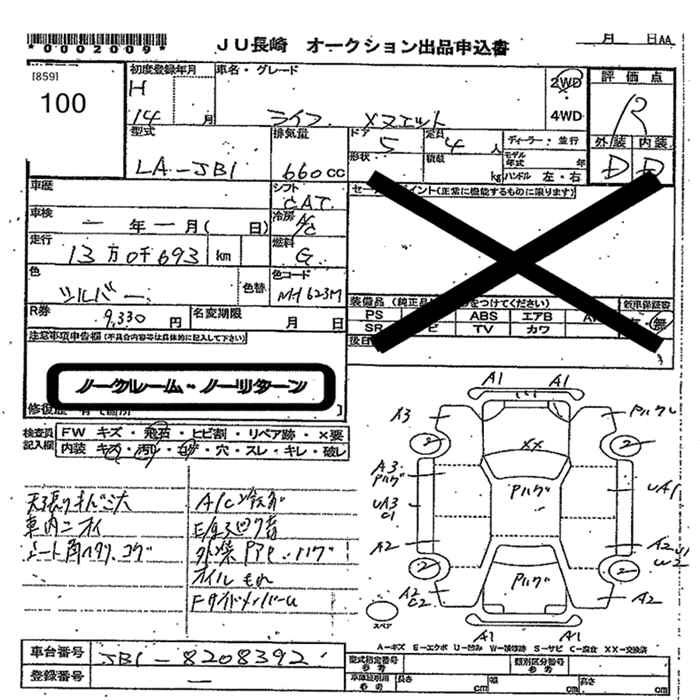 *0002009*
JU長崎 オークション出品申込書
月 日AA
[859]
100
初度登録年月
H
14 月
車名・グレード
ライフ
2WD
4WD
評価点
R
外/装 内装
D D
型式
LA-JB1
排気量
660cc
ドア
5
定員
4 人
形状
積載
kg
ディーラー・並行
モデル年式 年
ハンドル 左・右
車歴
シフト
CAT
車検
一 年 一 月( 日)
冷房
A/C
走行
13万0千693 km
燃料
G
色
シルバー
色替
色コード
NH623M
R券
9,330 円
名変期限
月 日
イント(正常に機能するものに限ります)
装備品
をつけてください)
新車保証書
PS ABS エアB
SR TV カワ
無
注意事項申告欄(不具合内容等は具体的に記入して下さい)
ノークレーム・ノーリターン
検査員記入欄
FW キズ・飛石・ヒビ割・リペア跡・×要
内装 キズ・汚れ・コゲ・穴・スレ・キレ・破レ
車内ニオイ
オイルもれ
A1 A1
A3
2 2
XX
A3
Pハゲ
Pハゲ
UA3
C1
UA1
A2
A2
2 2
Pハゲ
A2
C2
A2
A1 A1
スペア
A-キズ E-エクボ U-凹ミ W-補修跡 S-サビ C-腐食 XX-交換済
車台番号
JB1-8208392
登録番号
一
型式指定番号
参考
類別区分番号
参考
長さ cm
幅 cm
高さ cm